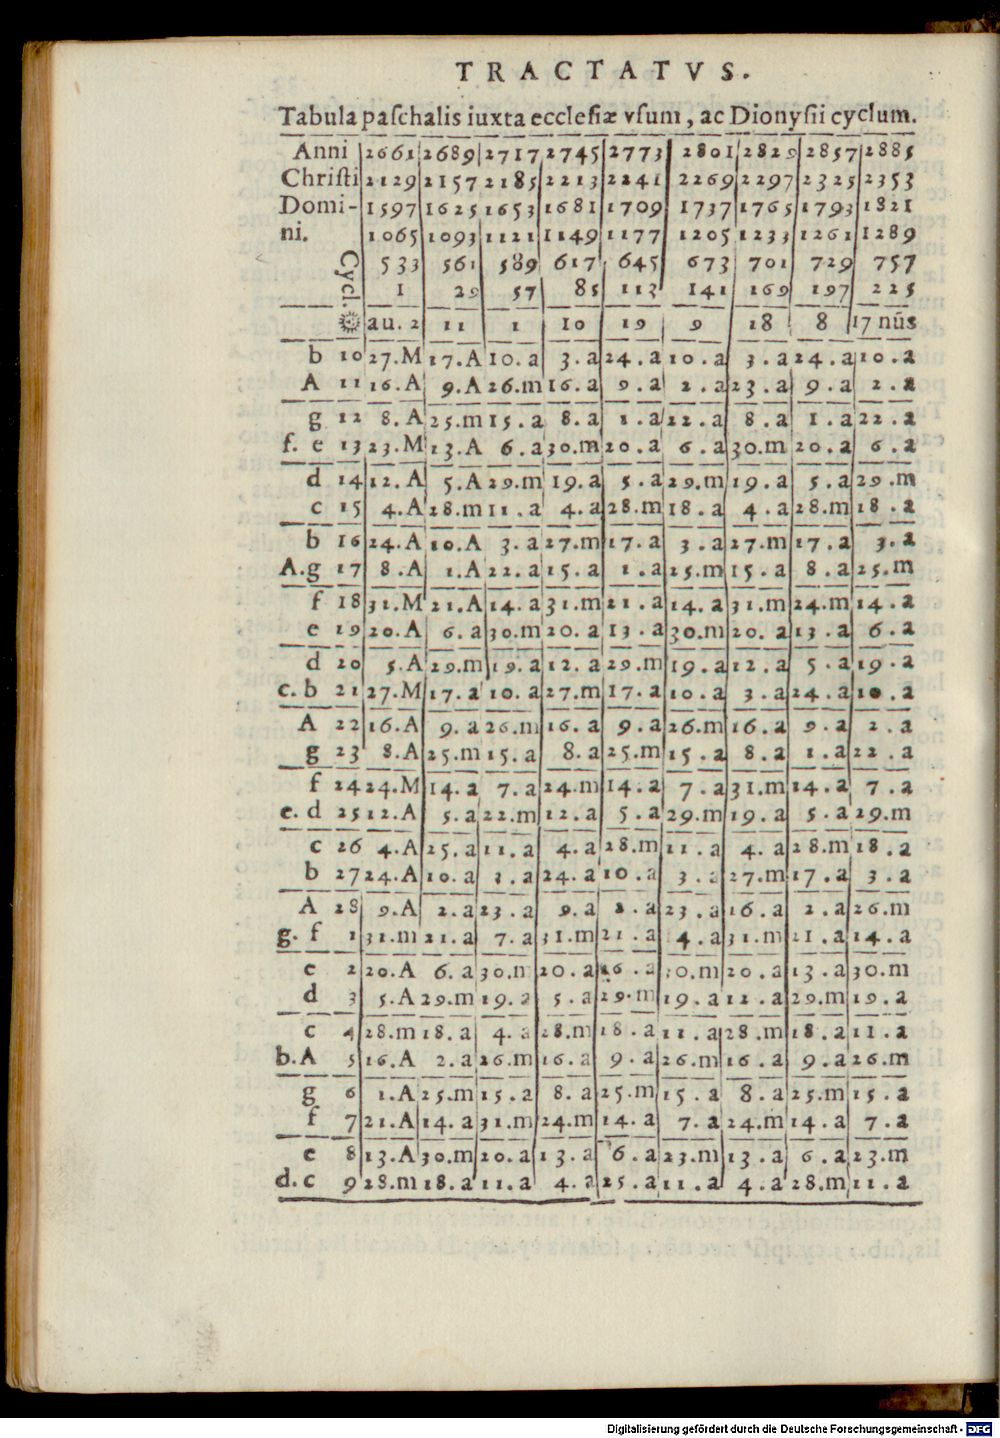 TRACTATVS.
Tabula paſchalis iuxta eccleſiæ vſum, ac Dionyſii cyclum.
Anni 2661 2689 2717 2745 2773 2801 2829 2857 2885
Chriſti 2129 2157 2185 2213 2241 2269 2297 2325 2353
Domi- 1597 1625 1653 1681 1709 1737 1765 1793 1821
ni. 1065 1093 1121 1149 1177 1205 1233 1261 1289
Cycl. 533 561 589 617 645 673 701 729 757
1 29 57 85 113 141 169 197 225
au. 2 11 1 10 19 9 18 8 17 nūs
b 10 27.M 17.A 10.a 3.a 24.a 10.a 3.a 24.a 10.a
A 11 16.A 9.A 26.m 16.a 9.a 2.a 23.a 9.a 2.a
g 12 8.A 25.m 15.a 8.a 1.a 22.a 8.a 1.a 22.a
f. e 13 23.M 13.A 6.a 30.m 20.a 6.a 30.m 20.a 6.a
d 14 12.A 5.A 29.m 19.a 5.a 29.m 19.a 5.a 29.m
c 15 4.A 28.m 11.a 4.a 28.m 18.a 4.a 28.m 18.a
b 16 24.A 10.A 3.a 27.m 17.a 3.a 27.m 17.a 3.a
A.g 17 8.A 1.A 22.a 15.a 1.a 25.m 15.a 8.a 25.m
f 18 31.M 21.A 14.a 31.m 21.a 14.a 31.m 24.m 14.a
e 19 20.A 6.a 30.m 20.a 13.a 30.m 20.a 13.a 6.a
d 20 5.A 29.m 19.a 12.a 29.m 19.a 12.a 5.a 19.a
c.b 21 27.M 17.a 10.a 27.m 17.a 10.a 3.a 24.a 10.a
A 22 16.A 9.a 26.m 16.a 9.a 26.m 16.a 9.a 2.a
g 23 8.A 25.m 15.a 8.a 25.m 15.a 8.a 1.a 22.a
f 24 24.M 14.a 7.a 24.m 14.a 7.a 31.m 14.a 7.a
e.d 25 12.A 5.a 22.m 12.a 5.a 29.m 19.a 5.a 29.m
c 26 4.A 25.a 11.a 4.a 28.m 11.a 4.a 28.m 18.a
b 27 24.A 10.a 3.a 24.a 10.a 3.a 27.m 17.a 3.a
A 28 9.A 2.a 23.a 9.a 2.a 23.a 16.a 2.a 26.m
g. f 1 31.m 21.a 7.a 31.m 21.a 4.a 31.m 21.a 14.a
e 2 20.A 6.a 30.m 20.a 30.m 20.a 13.a 30.m
d 3 5.A 29.m 19.a 5.a 29.m 19.a 12.a 29.m 19.a
c 4 28.m 18.a 4.a 28.m 18.a 11.a 28.m 18.a 11.a
b.A 5 16.A 2.a 26.m 16.a 9.a 26.m 16.a 9.a 26.m
g 6 1.A 25.m 15.a 8.a 25.m 15.a 8.a 25.m 15.a
f 7 21.A 14.a 31.m 24.m 14.a 7.a 24.m 14.a 7.a
e 8 13.A 30.m 20.a 13.a 6.a 23.m 13.a 6.a 23.m
d.c 9 28.m 18.a 11.a 4.a 25.a 11.a 4.a 28.m 11.a
Digitalisierung gefördert durch die Deutsche Forschungsgemeinschaft - DFG